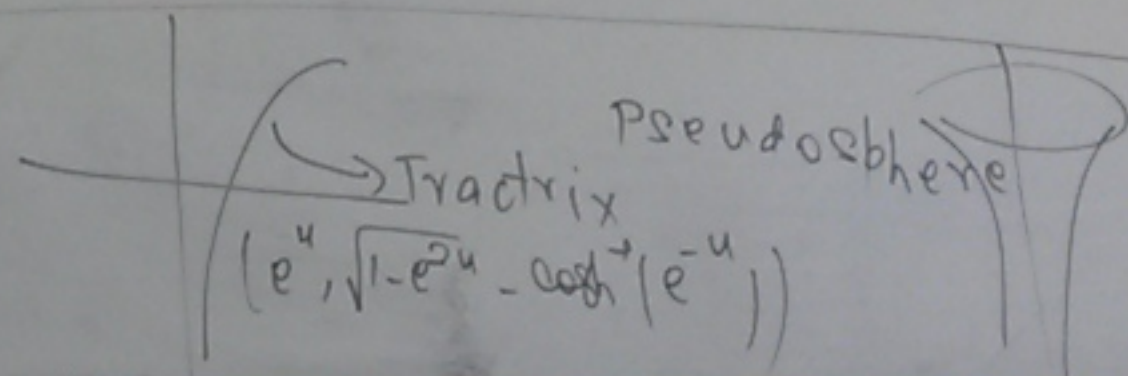 Pseudosphere
Tractrix
(e^u, √1-e^2u - cosh^-1(e^-u))